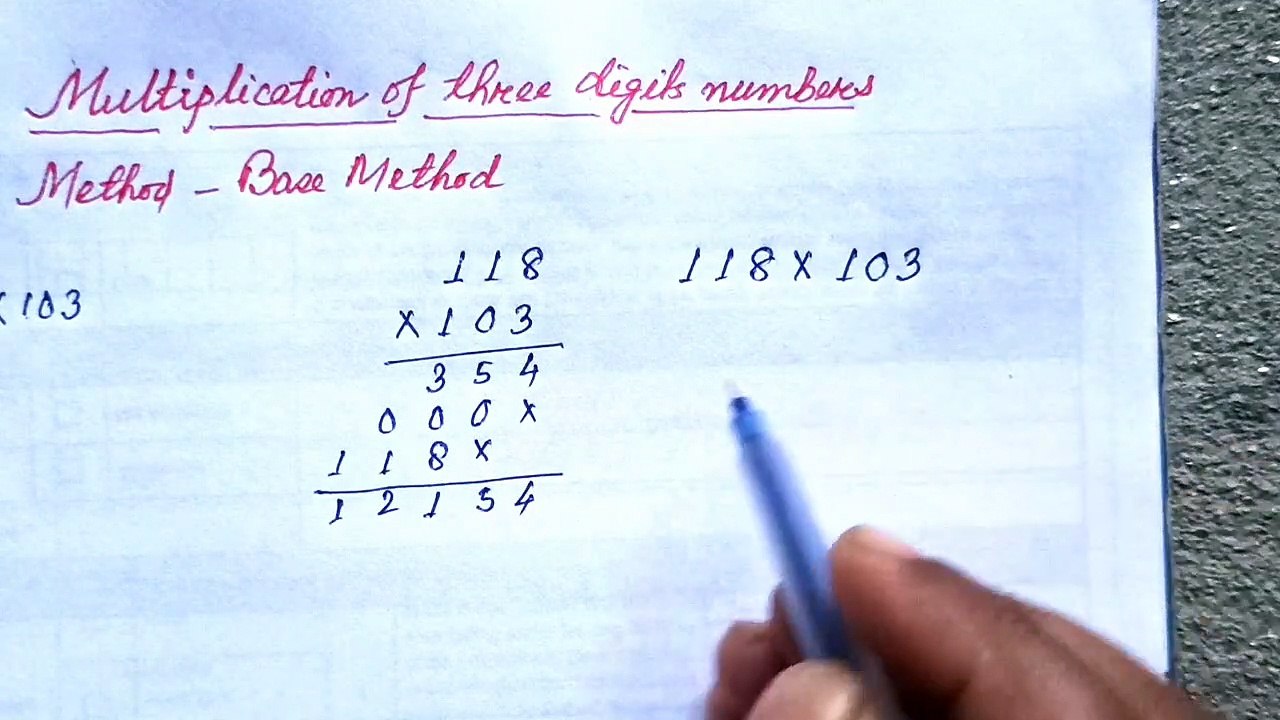 Multiplication of three digits numberes
Method - Base Method
x 103
118
x 103
354
000x
118x
12154
118 x 103